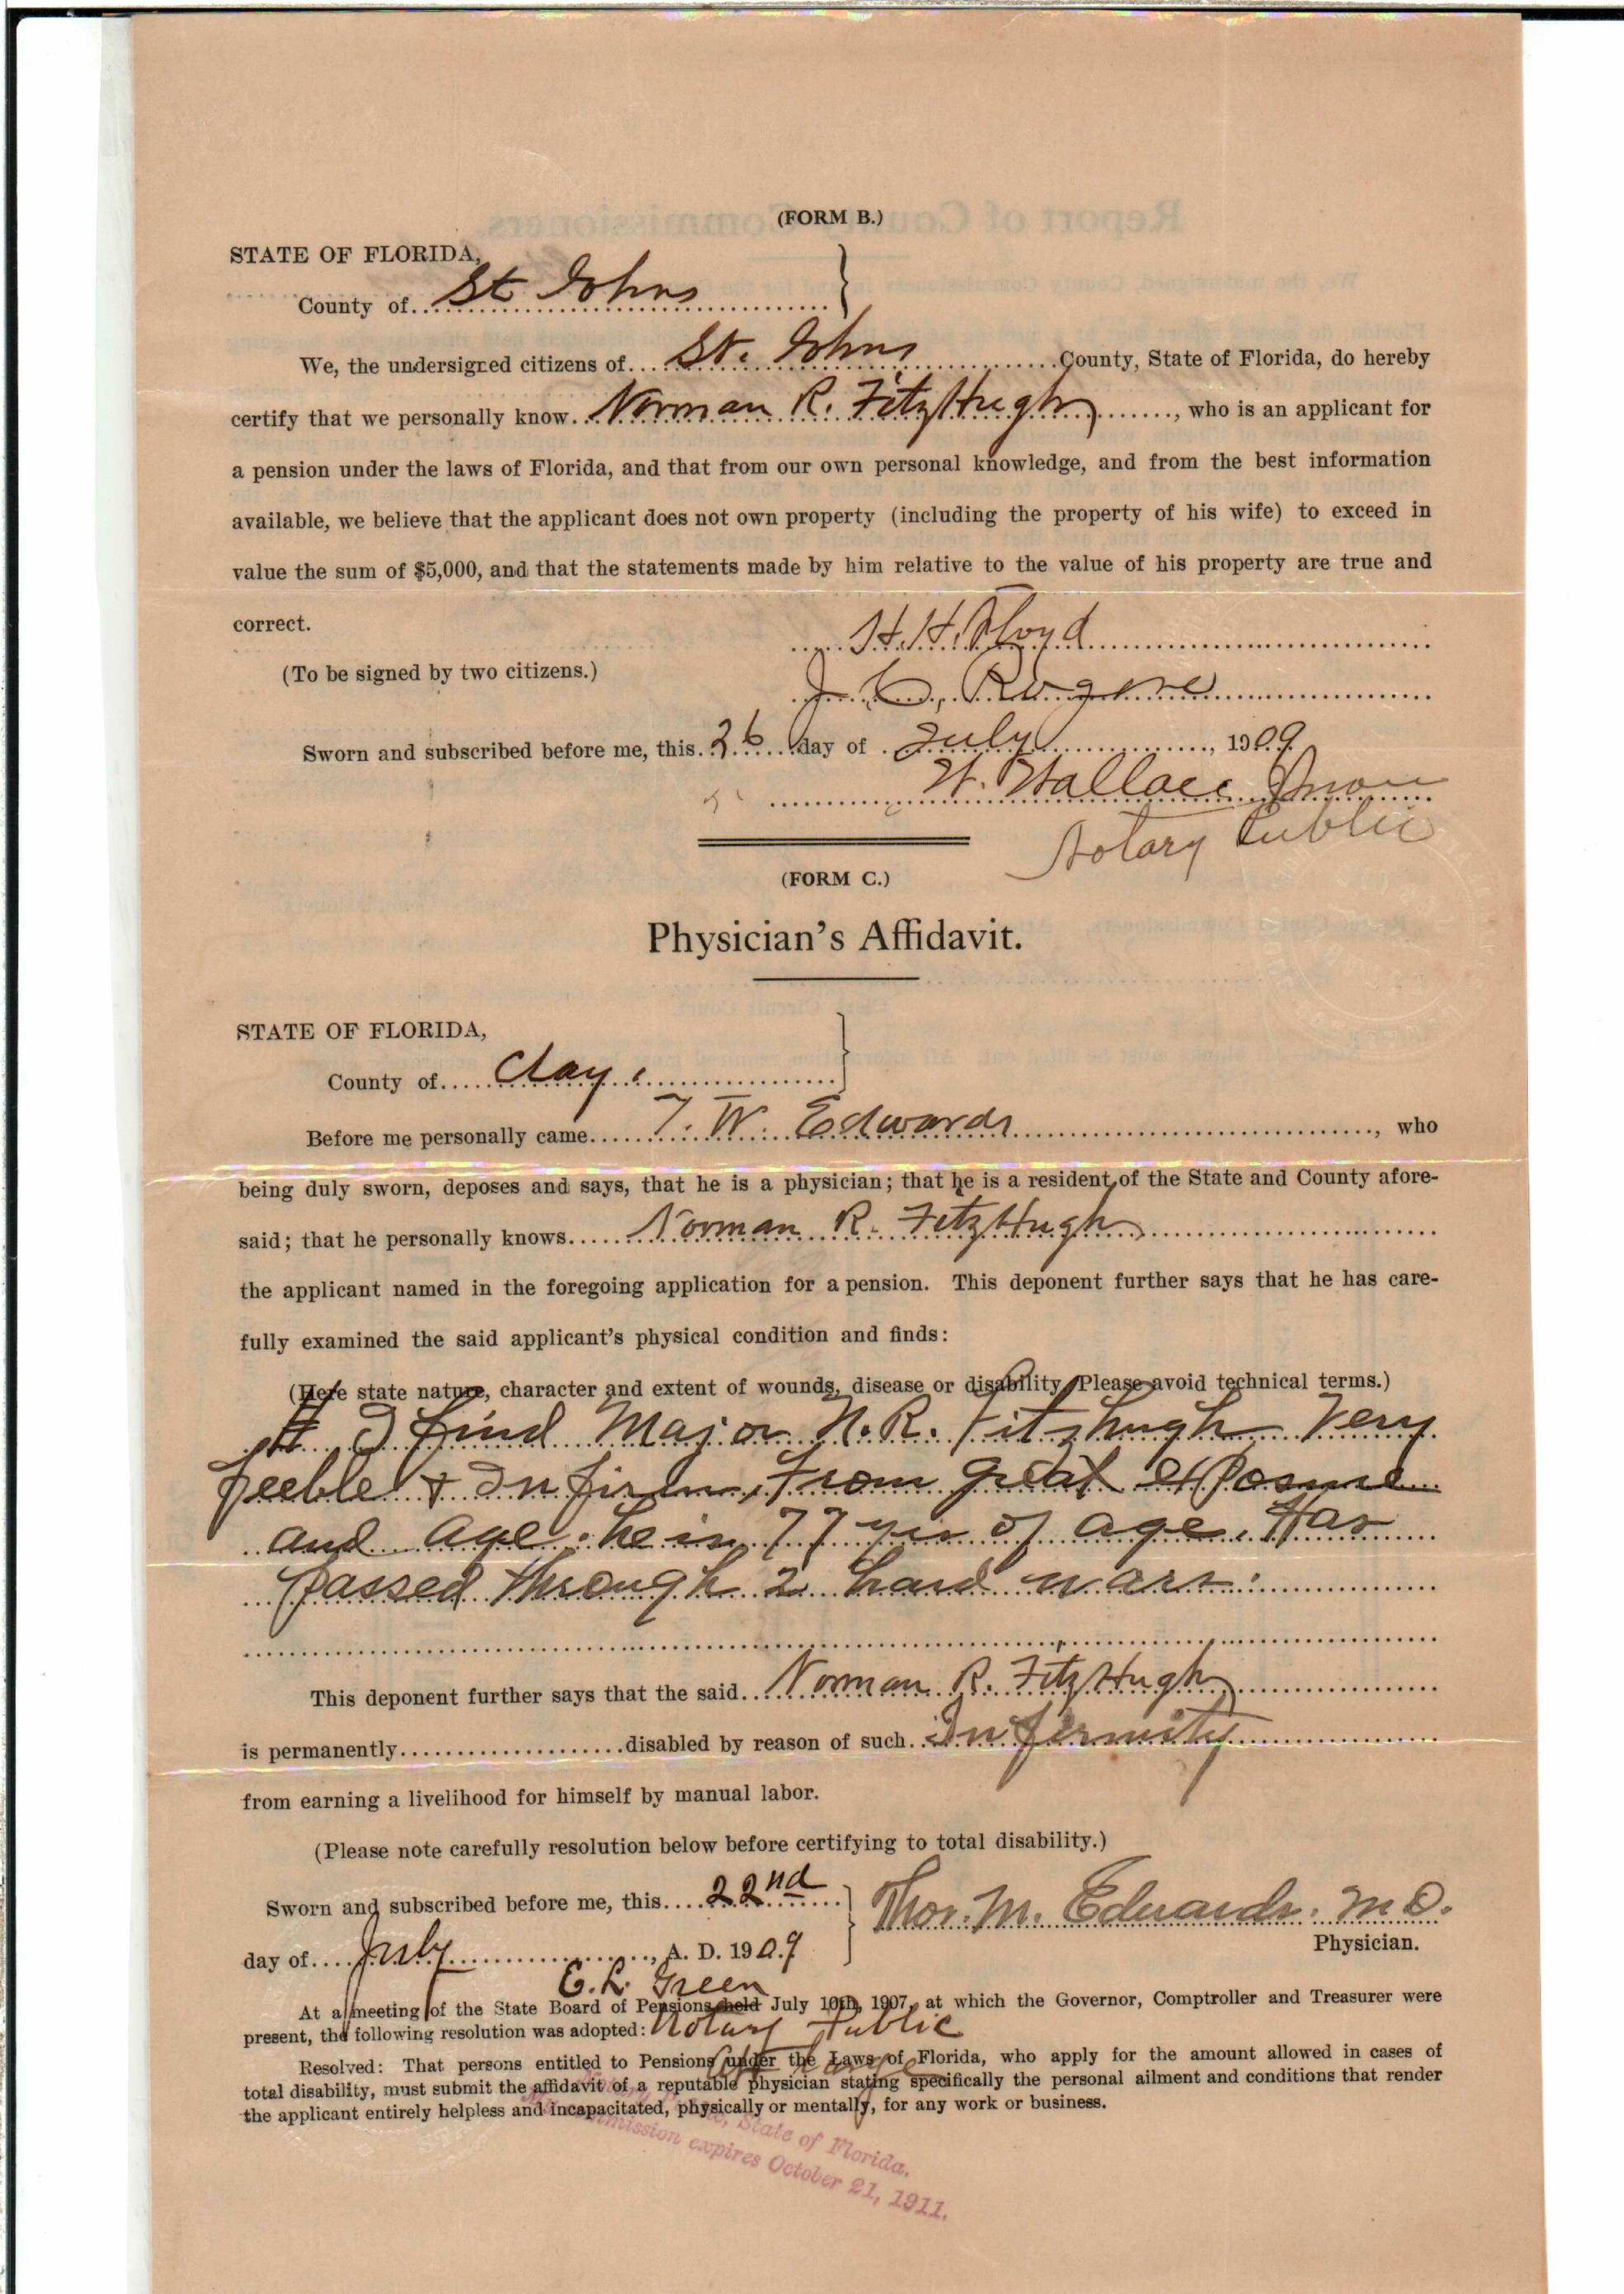 (FORM B.)
STATE OF FLORIDA,
County of St Johns
We, the undersigned citizens of St. Johns County, State of Florida, do hereby
certify that we personally know Norman R. FitzHugh, who is an applicant for
a pension under the laws of Florida, and that from our own personal knowledge, and from the best information
available, we believe that the applicant does not own property (including the property of his wife) to exceed in
value the sum of $5,000, and that the statements made by him relative to the value of his property are true and
correct.
H. H. Floyd
(To be signed by two citizens.)
J. C.
Sworn and subscribed before me, this 26 day of July, 1909
W. Wallace Snow
Notary Public
(FORM C.)
Physician's Affidavit.
STATE OF FLORIDA,
County of Clay.
Before me personally came T. W. Edwards, who
being duly sworn, deposes and says, that he is a physician; that he is a resident of the State and County afore-
said; that he personally knows Norman R. FitzHugh
the applicant named in the foregoing application for a pension. This deponent further says that he has care-
fully examined the said applicant's physical condition and finds:
(Here state nature, character and extent of wounds, disease or disability. Please avoid technical terms.)
I find Major N. R. Fitzhugh Very
feeble & Infirm, From great exposure
and age. he is 77 yrs of age. Has
passed through 2 hard wars.
This deponent further says that the said Norman R. FitzHugh
is permanently disabled by reason of such Infirmity
from earning a livelihood for himself by manual labor.
(Please note carefully resolution below before certifying to total disability.)
Sworn and subscribed before me, this 22nd
Thos. M. Edwards. M D.
day of July, A. D. 1909
Physician.
E. L. Green
At a meeting of the State Board of Pensions held July 10th, 1907, at which the Governor, Comptroller and Treasurer were
present, the following resolution was adopted: Notary Public
Resolved: That persons entitled to Pensions under the Laws of Florida, who apply for the amount allowed in cases of
at Large
total disability, must submit the affidavit of a reputable physician stating specifically the personal ailment and conditions that render
the applicant entirely helpless and incapacitated, physically or mentally, for any work or business.
State of Florida.
commission expires October 21, 1911.